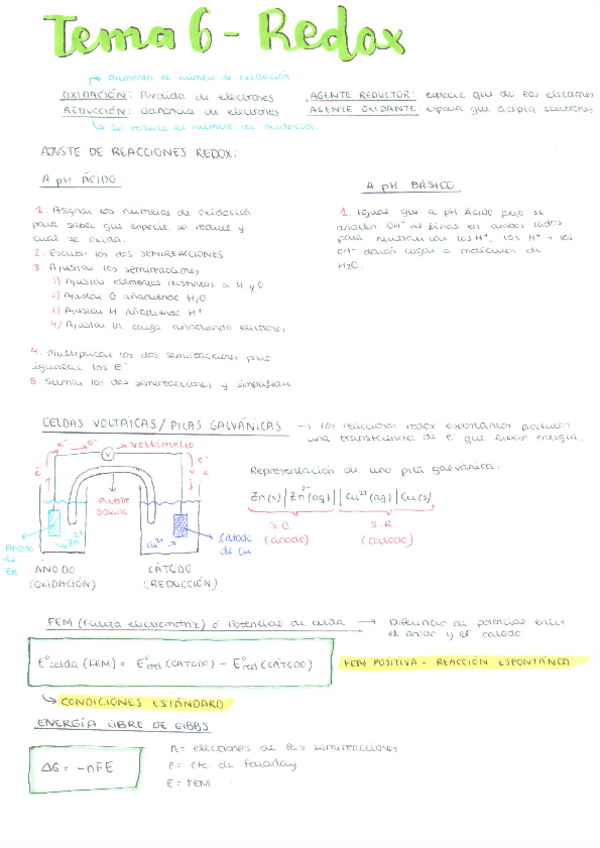 Tema 6 - Redox
↱ Aumenta el número de oxidación
OXIDACIÓN: Pérdida de electrones
REDUCCIÓN: Ganancia de electrones
↳ Se reduce el número de oxidación.
AGENTE REDUCTOR: especie que da los electrones
AGENTE OXIDANTE especie que acepta electrones
AJUSTE DE REACCIONES REDOX:
A pH ÁCIDO
1. Asignar los números de oxidación
para saber que especie se reduce y
cual se oxida.
2. Escribir las dos SEMIREACCIONES
3 Ajustar las semireacciones
1) Ajustar elementos distintos a H y O
2) Ajustar O añadiendo H2O
3) Ajustar H añadiendo H+
4) Ajustar la carga añadiendo electrones
4. Multiplicar las dos semireacciones para
igualar los e-
5. Sumar las dos semireacciones y simplificar
A pH BÁSICO
1. Igual que a pH ÁCIDO pero se
añaden OH- al final en ambos lados
para neutralizar los H+, los H+ y los
OH- darán lugar a moléculas de
H2O.
CELDAS VOLTAICAS / PILAS GALVÁNICAS → las reacciones redox espontáneas producen
una transferencia de e- que libera energía.
e- → e- → voltímetro
V
e-
e-
Puente
salino
Ánodo
de
Zn
Zn2+
Cu2+
Cátodo
de Cu
ÁNODO
(OXIDACIÓN)
CÁTODO
(REDUCCIÓN)
Representación de una pila galvánica.
Zn(s) | Zn2+(aq) || Cu2+(aq) | Cu(s)
S.O. S.R.
(ánodo) (cátodo)
FEM (Fuerza electromotriz) o Potencial de celda → Diferencia de potencial entre
el ánodo y el cátodo
E°celda (FEM) = E°red (CÁTODO) - E°red (CÁTODO)
FEM POSITIVA - REACCIÓN ESPONTÁNEA
↳ CONDICIONES ESTÁNDARD
ENERGÍA LIBRE DE GIBBS
ΔG = -nFE
n = electrones de las semireacciones
F = cte. de Faraday
E = FEM